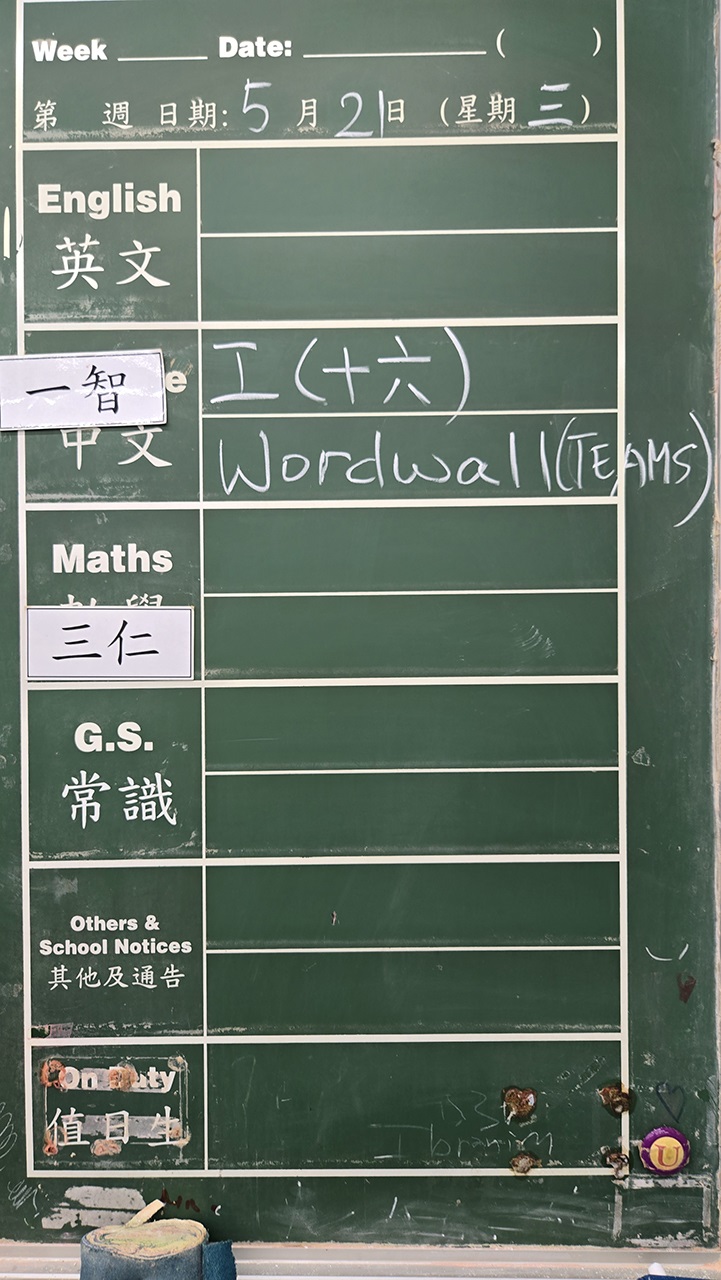 Week ______ Date: ____________ ( )
第 週 日期: 5 月 21 日 (星期 三)
English
英文
工(十六)
一智
e
中文
Wordwall (TEAMS)
Maths
數學
三仁
G.S.
常識
Others &
School Notices
其他及通告
On Duty
值日生
Ibrahim
U